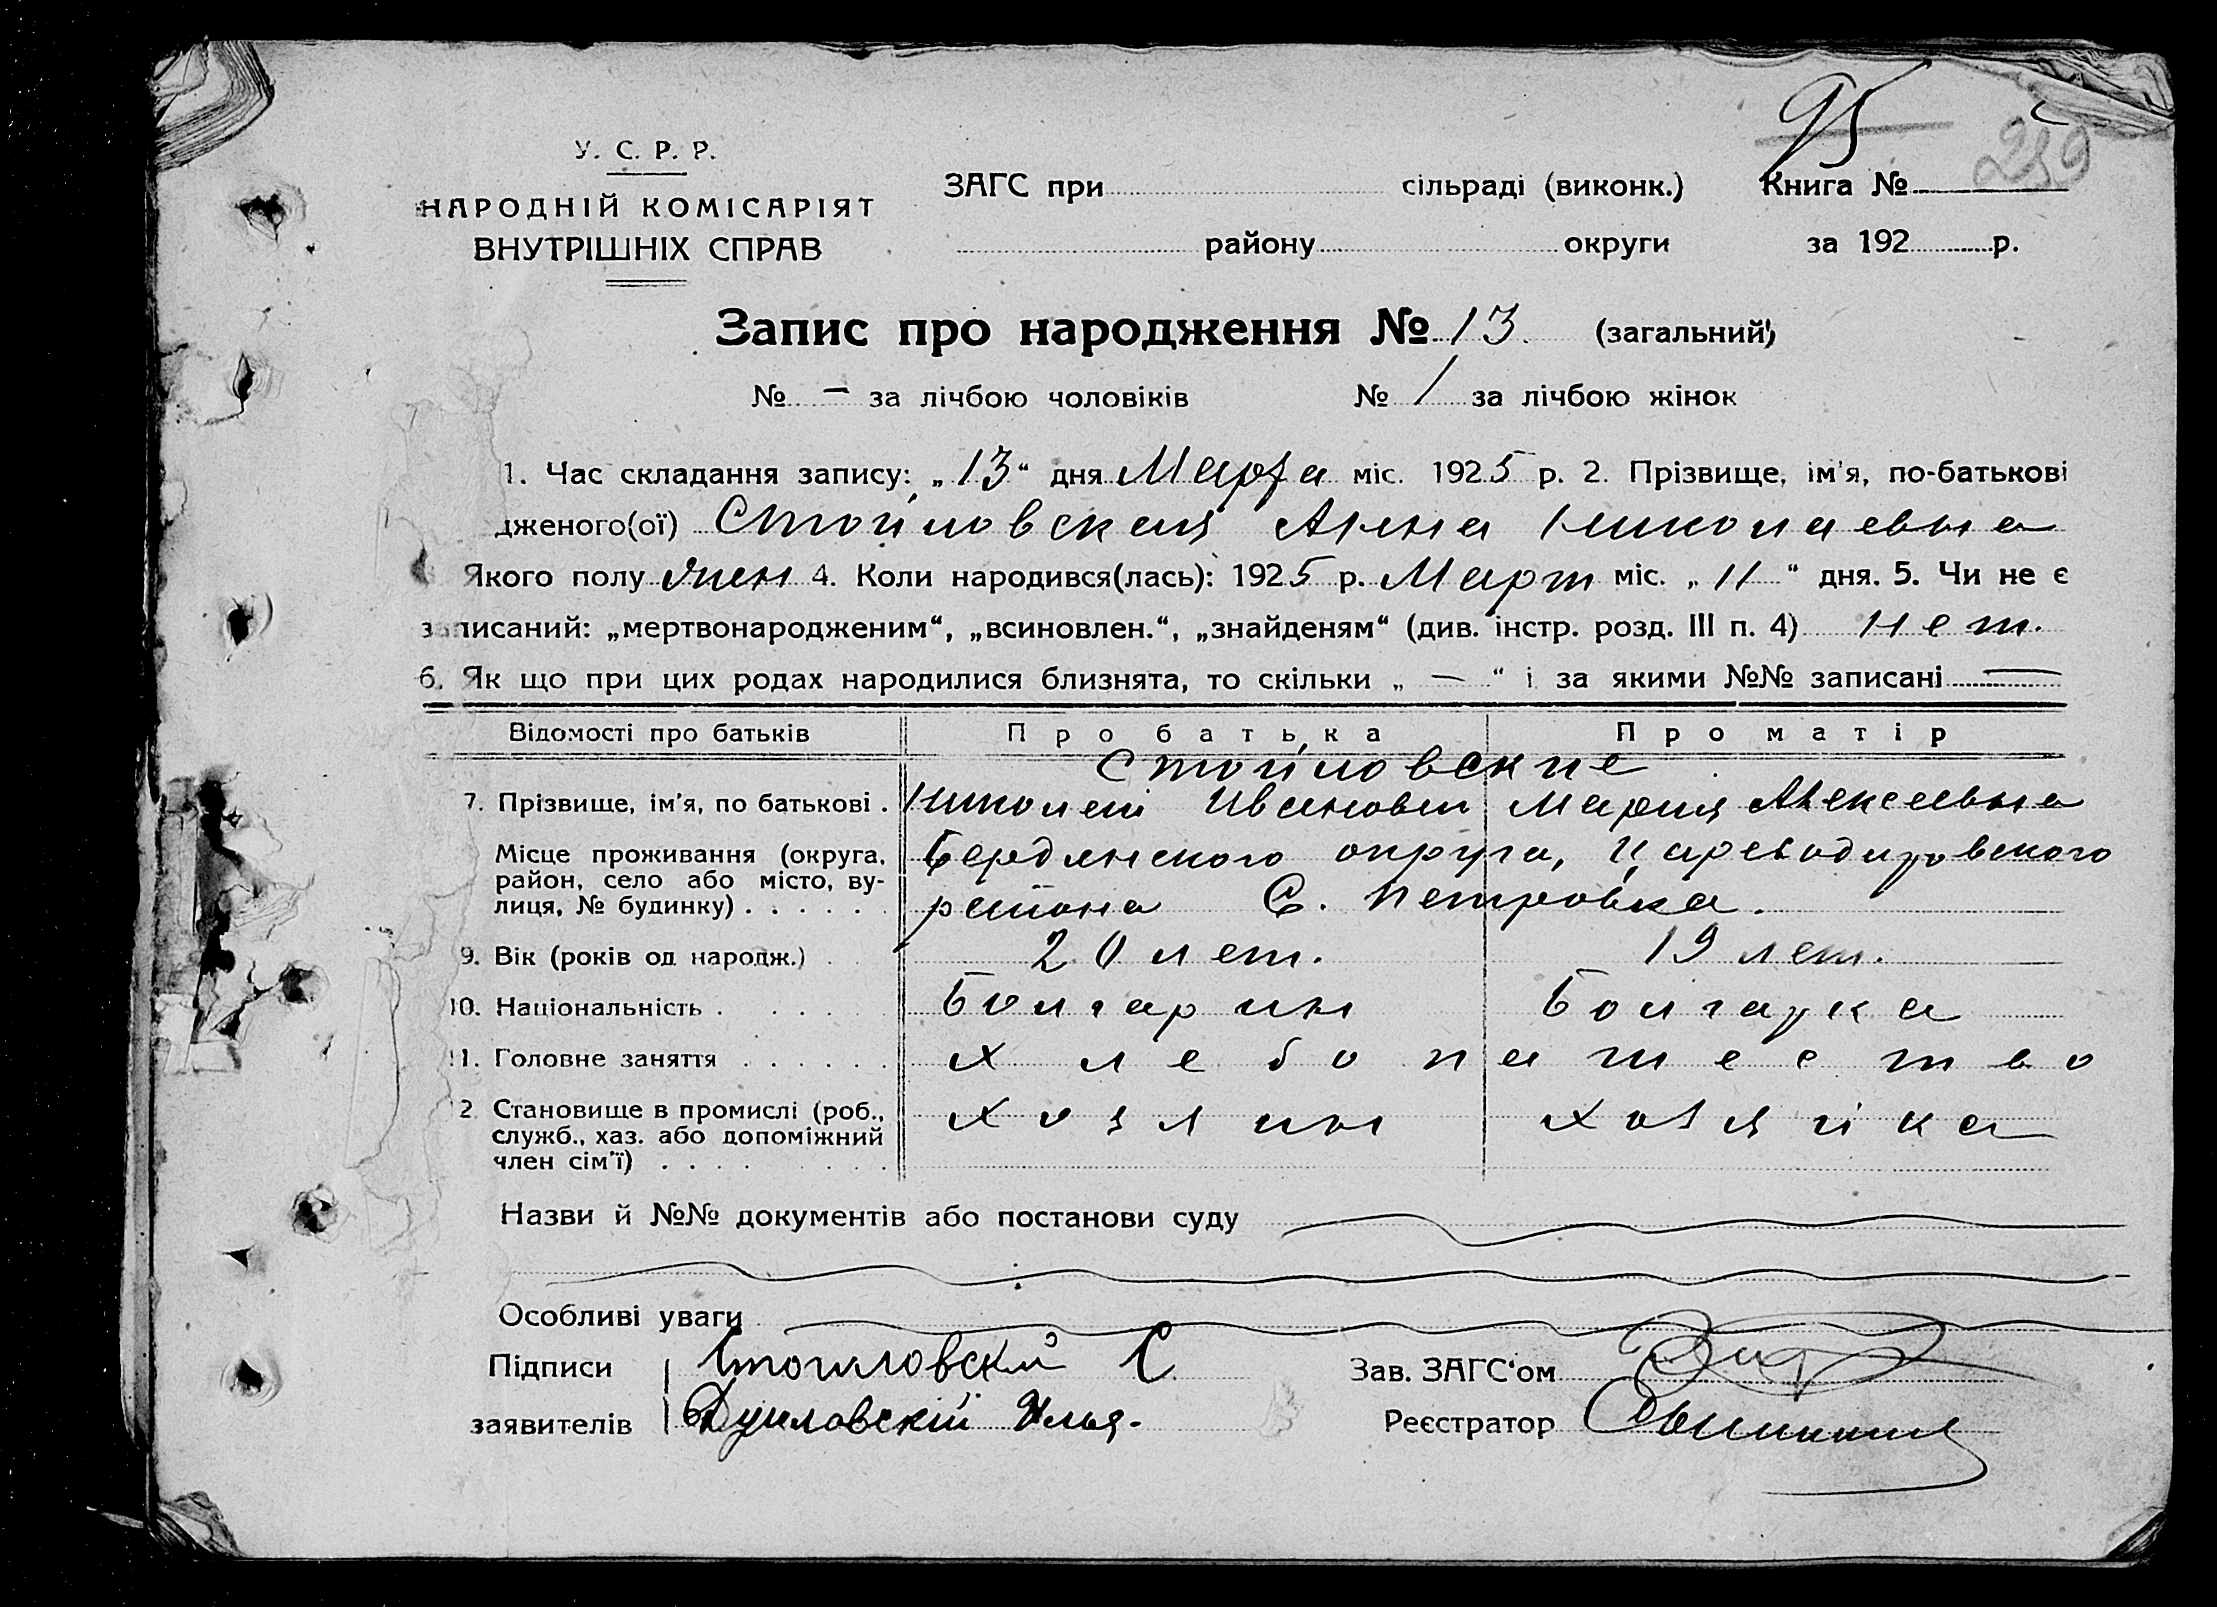 95
239
У. С. Р. Р.
НАРОДНІЙ КОМІСАРІЯТ
ВНУТРІШНІХ СПРАВ
ЗАГС при сільраді (виконк.) Книга №
району округи за 192 р.
Запис про народження № 13 (загальний)
№ — за лічбою чоловіків № 1 за лічбою жінок
1. Час складання запису: „13“ дня Марта міс. 1925 р. 2. Прізвище, ім'я, по-батькові
дженого(ої) Стойловская Анна Николаевна
Якого полу жен 4. Коли народився(лась): 1925 р. Март міс. „11“ дня. 5. Чи не є
записаний: „мертвонародженим“, „всиновлен.“, „знайденям“ (див. інстр. розд. III п. 4) нет.
6. Як що при цих родах народилися близнята, то скільки „ — “ і за якими №№ записані —
Відомості про батьків Про батька Про матір
Стойловские
7. Прізвище, ім'я, по батькові . Николай Иванович Мария Алексеевна
Місце проживання (округа, Бердянского округа, Цареводаровского
район, село або місто, ву-
лиця, № будинку) . . . . . . района С. Петровка.
9. Вік (років од народж.) . . 20 лет. 19 лет.
10. Національність . . . . . Болгарин Болгарка
11. Головне заняття . . . . . . хлебопашество
12 Становище в промислі (роб., хозяин хозяйка
служб., хаз. або допоміжний
член сім'ї) . . . . . . . .
Назви й №№ документів або постанови суду
Особливі уваги
Підписи Стоиловский С Зав. ЗАГС'ом
заявителів Илья. Реєстратор